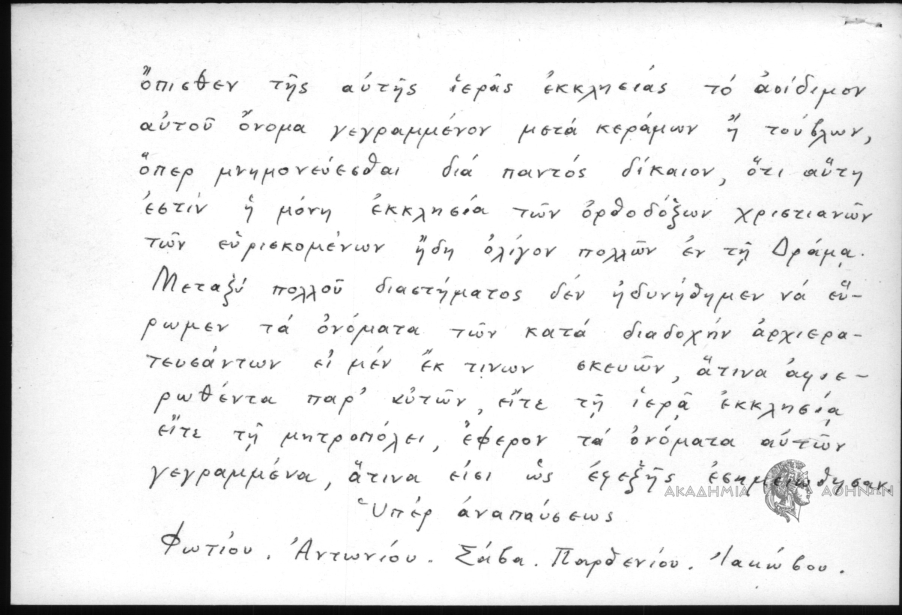 ὄπισθεν τῆς αὐτῆς ἱερᾶς ἐκκλησίας τό ἀοίδιμον
αὐτοῦ ὄνομα γεγραμμένον μετά κεράμων ἤ τούβλων,
ὅπερ μνημονεύεσθαι διά παντός δίκαιον, ὅτι αὕτη
ἐστίν ἡ μόνη ἐκκλησία τῶν ὀρθοδόξων χριστιανῶν
τῶν εὑρισκομένων ἤδη ὀλίγον πολλῶν ἐν τῇ Δράμᾳ.
Μεταξύ πολλοῦ διαστήματος δέν ἠδυνήθημεν νά εὕ-
ρωμεν τά ὀνόματα τῶν κατά διαδοχήν ἀρχιερα-
τευσάντων εἰ μέν ἔκ τινων σκευῶν, ἅτινα ἀφιε-
ρωθέντα παρ' αὐτῶν, εἴτε τῇ ἱερᾷ ἐκκλησίᾳ
εἴτε τῇ μητροπόλει, ἔφερον τά ὀνόματα αὐτῶν
γεγραμμένα, ἅτινα εἰσι ὡς ἐφεξῆς ἐσημειώθησαν
ΑΚΑΔΗΜΙΑ ΑΘΗΝΩΝ
Ὑπέρ ἀναπαύσεως
Φωτίου. Ἀντωνίου. Σάβα. Παρθενίου. Ἰακώβου.